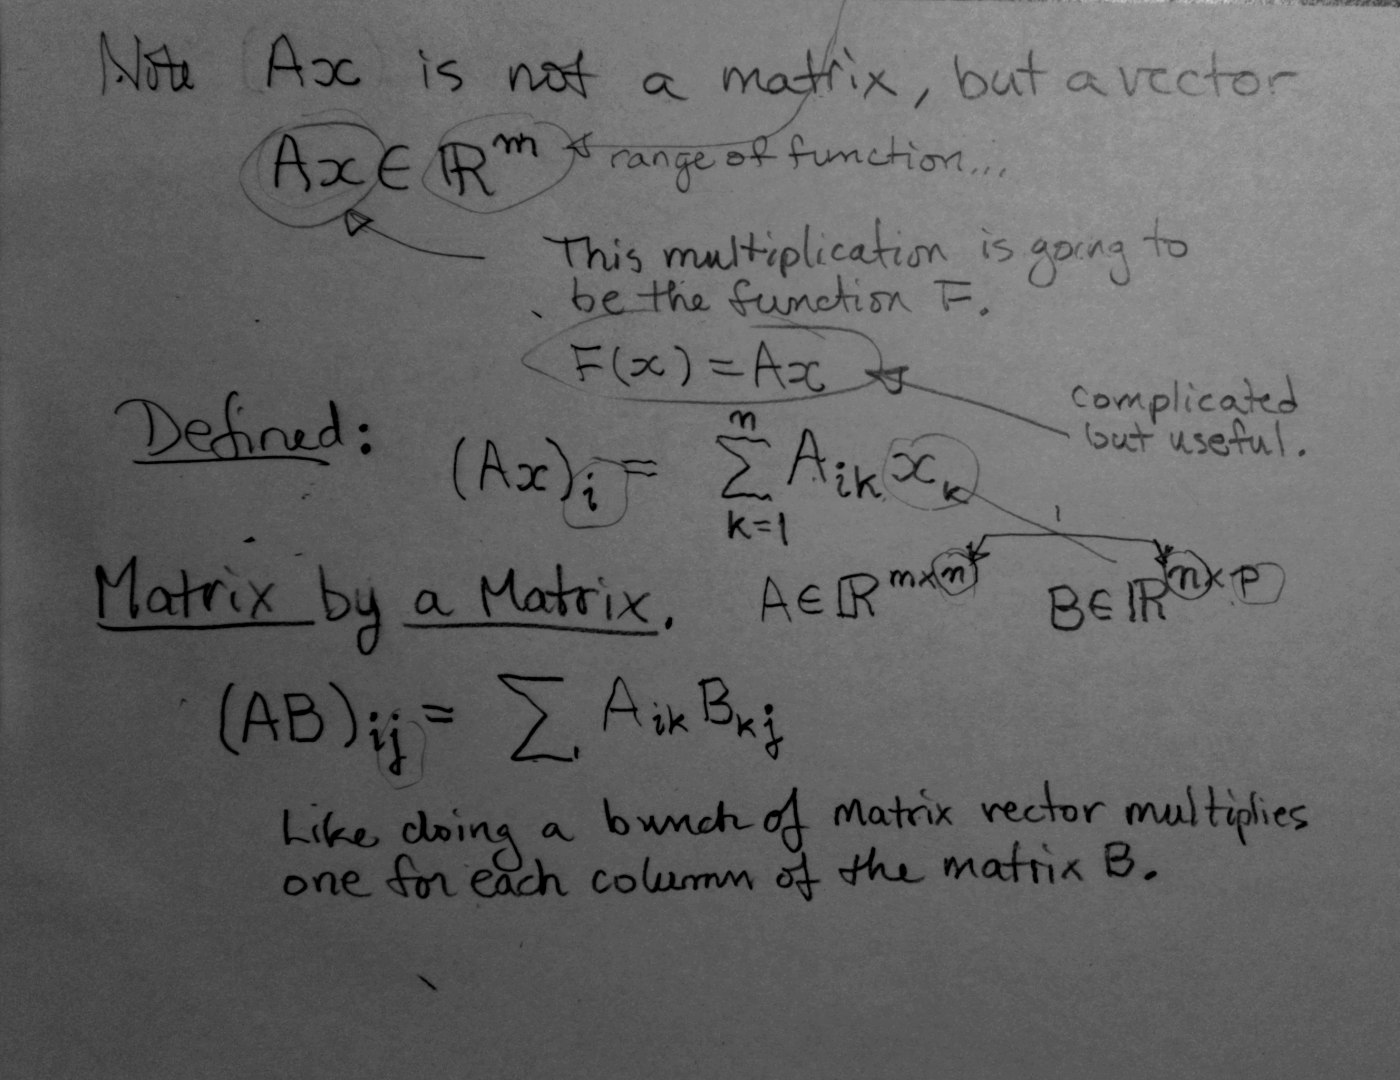 Note Ax is not a matrix, but a vector
Ax ∈ ℝ^m range of function...
This multiplication is going to
be the function F.
F(x) = Ax
complicated
but useful.
Defined: (Ax)_i = ∑_{k=1}^{n} A_{ik} x_k
Matrix by a Matrix. A ∈ ℝ^{m×n} B ∈ ℝ^{n×p}
(AB)_{ij} = ∑ A_{ik} B_{kj}
Like doing a bunch of matrix vector multiplies
one for each column of the matrix B.